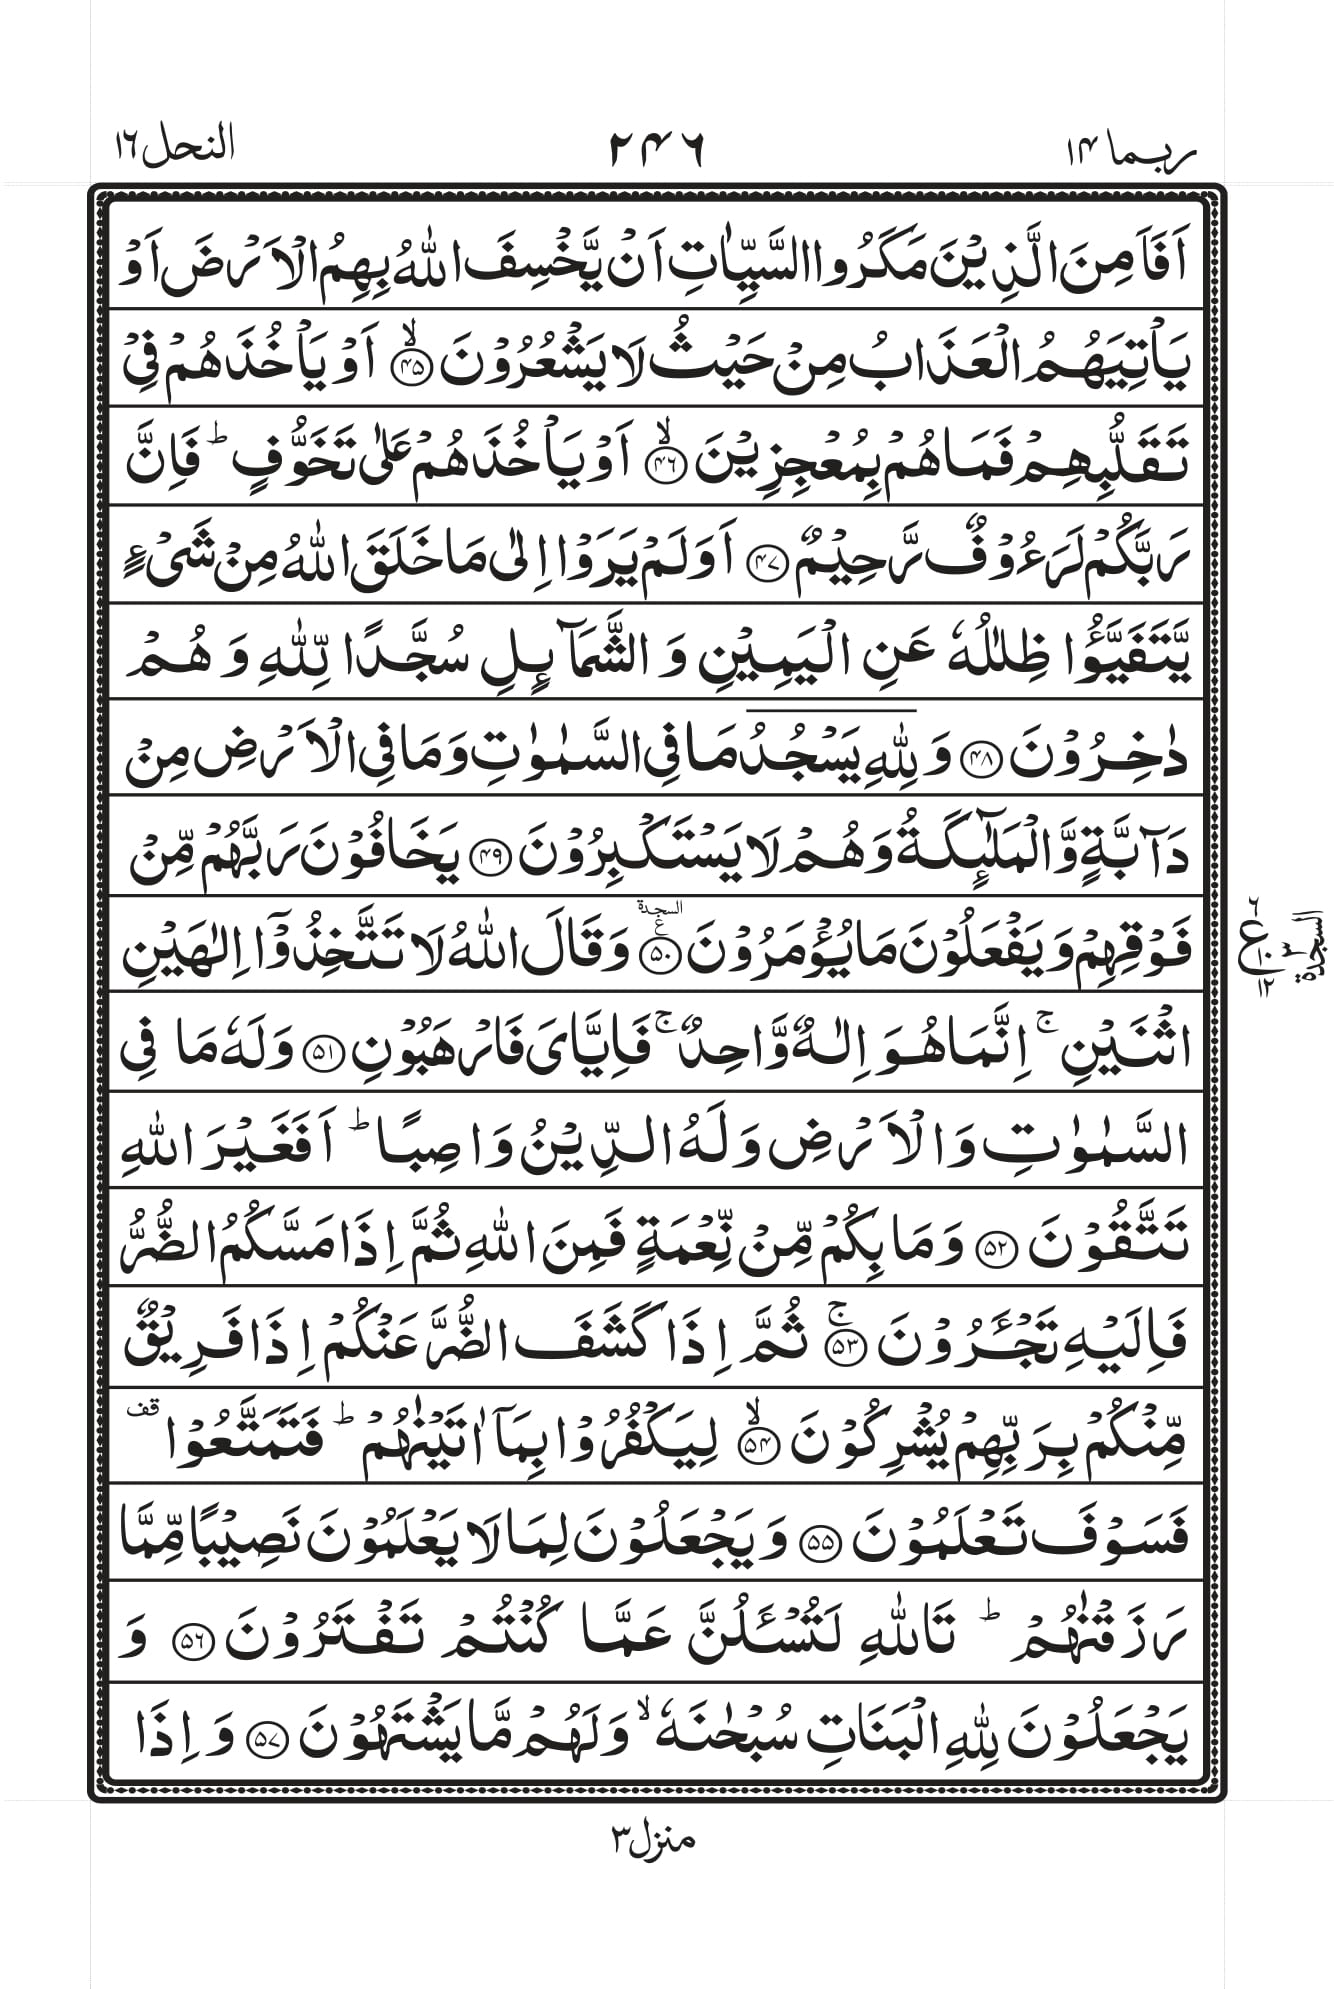 ربما ۱۴
۲۴۶
النحل ۱۶
اَفَاَمِنَ الَّذِيۡنَ مَكَرُوا السَّيِّاٰتِ اَنۡ يَّخۡسِفَ اللّٰهُ بِهِمُ الۡاَرۡضَ اَوۡ
يَاۡتِيَهُمُ الۡعَذَابُ مِنۡ حَيۡثُ لَا يَشۡعُرُوۡنَ ۙ‏﴿۴۵﴾ اَوۡ يَاۡخُذَهُمۡ فِىۡ
تَقَلُّبِهِمۡ فَمَا هُمۡ بِمُعۡجِزِيۡنَ ۙ‏﴿۴۶﴾ اَوۡ يَاۡخُذَهُمۡ عَلٰى تَخَوُّفٍ ؕ فَاِنَّ
رَبَّكُمۡ لَرَءُوۡفٌ رَّحِيۡمٌ ‏﴿۴۷﴾ اَوَلَمۡ يَرَوۡا اِلٰى مَا خَلَقَ اللّٰهُ مِنۡ شَىۡءٍ
يَّتَفَيَّؤُا ظِلٰلُهٗ عَنِ الۡيَمِيۡنِ وَ الشَّمَآٮِٕلِ سُجَّدًا لِّلّٰهِ وَ هُمۡ
دٰخِرُوۡنَ ‏﴿۴۸﴾ وَلِلّٰهِ يَسۡجُدُ مَا فِى السَّمٰوٰتِ وَمَا فِى الۡاَرۡضِ مِنۡ
دَآبَّةٍ وَّالۡمَلٰۤٮِٕكَةُ وَهُمۡ لَا يَسۡتَكۡبِرُوۡنَ ‏﴿۴۹﴾ يَخَافُوۡنَ رَبَّهُمۡ مِّنۡ
فَوۡقِهِمۡ وَيَفۡعَلُوۡنَ مَا يُؤۡمَرُوۡنَ ‏﴿۵۰﴾ السجدة ع وَقَالَ اللّٰهُ لَا تَتَّخِذُوۡۤا اِلٰهَيۡنِ
۶ ع ۱۰ ۱۲
السجدة ۳
اثۡنَيۡنِ‌ ۚ اِنَّمَا هُوَ اِلٰـهٌ وَّاحِدٌ‌ ۚ فَاِيَّاىَ فَارۡهَبُوۡنِ ‏﴿۵۱﴾ وَلَهٗ مَا فِى
السَّمٰوٰتِ وَالۡاَرۡضِ وَلَهُ الدِّيۡنُ وَاصِبًا‌ ؕ اَفَغَيۡرَ اللّٰهِ
تَتَّقُوۡنَ ‏﴿۵۲﴾ وَمَا بِكُمۡ مِّنۡ نِّعۡمَةٍ فَمِنَ اللّٰهِ‌ ثُمَّ اِذَا مَسَّكُمُ الضُّرُّ
فَاِلَيۡهِ تَجۡـَٔرُوۡنَ‌ ۚ‏﴿۵۳﴾ ثُمَّ اِذَا كَشَفَ الضُّرَّ عَنۡكُمۡ اِذَا فَرِيۡقٌ
مِّنۡكُمۡ بِرَبِّهِمۡ يُشۡرِكُوۡنَ ۙ‏﴿۵۴﴾ لِيَكۡفُرُوۡا بِمَاۤ اٰتَيۡنٰهُمۡ‌ؕ فَتَمَتَّعُوۡا قف
فَسَوۡفَ تَعۡلَمُوۡنَ ‏﴿۵۵﴾ وَيَجۡعَلُوۡنَ لِمَا لَا يَعۡلَمُوۡنَ نَصِيۡبًا مِّمَّا
رَزَقۡنٰهُمۡ‌ؕ تَاللّٰهِ لَـتُسۡـَٔلُنَّ عَمَّا كُنۡتُمۡ تَفۡتَرُوۡنَ ‏﴿۵۶﴾ وَ
يَجۡعَلُوۡنَ لِلّٰهِ الۡبَـنٰتِ سُبۡحٰنَهٗ‌ۙ وَلَهُمۡ مَّا يَشۡتَهُوۡنَ ‏﴿۵۷﴾ وَاِذَا
منزل ۳